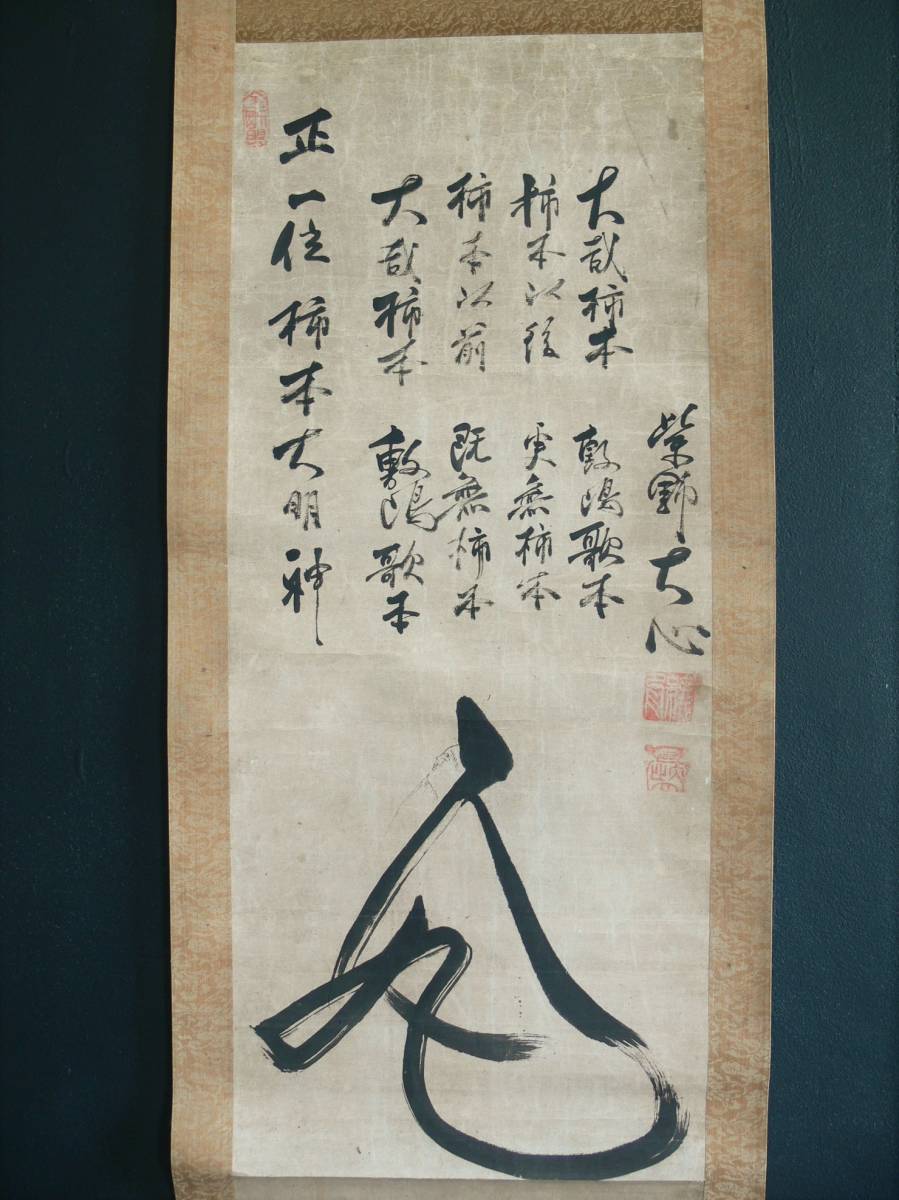 正一位柿本大明神
大哉柿本 敷嶋歌本
柿本以前 既無柿本
柿本以後 更無柿本
大哉柿本 敷嶋歌本
紫野大心
人丸